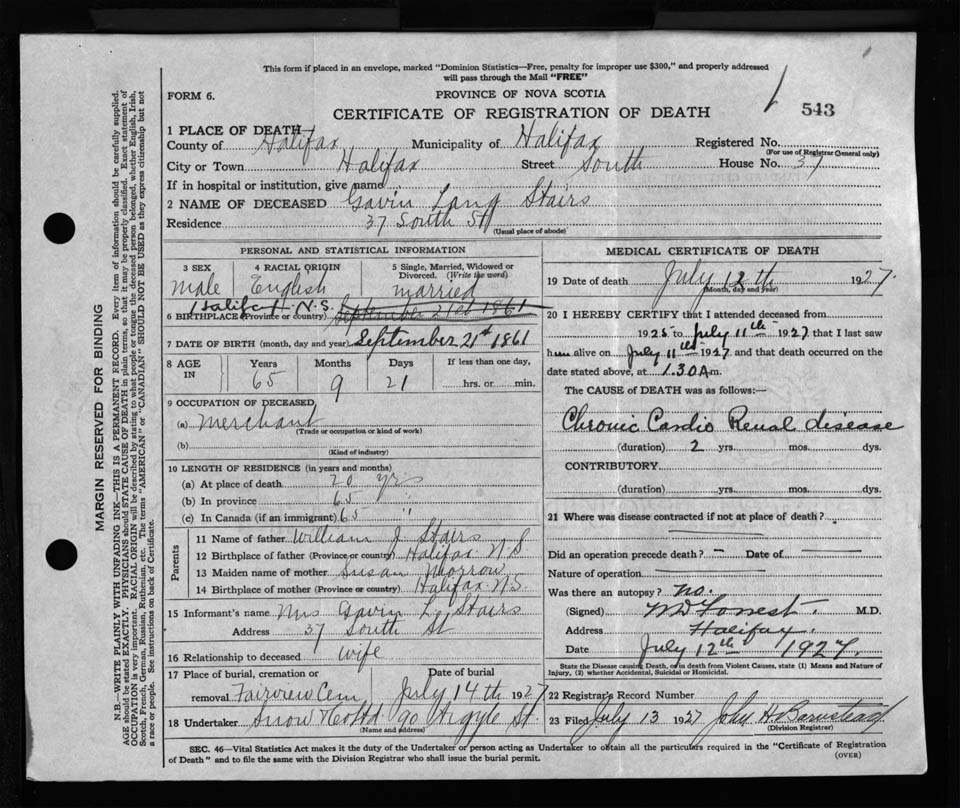 This form if placed in an envelope, marked "Dominion Statistics—Free, penalty for improper use $300," and properly addressed
will pass through the Mail "FREE"
FORM 6.
PROVINCE OF NOVA SCOTIA
543
CERTIFICATE OF REGISTRATION OF DEATH
1 PLACE OF DEATH
County of Halifax Municipality of Halifax Registered No.
(For use of Registrar General only)
City or Town Halifax Street South House No. 37
If in hospital or institution, give name
2 NAME OF DECEASED Gavin Lang Stairs
Residence 37 South St
(Usual place of abode)
PERSONAL AND STATISTICAL INFORMATION
3 SEX 4 RACIAL ORIGIN 5 Single, Married, Widowed or
Divorced. (Write the word)
male English married
Halifax N.S.
6 BIRTHPLACE (Province or country) September 21st 1861
7 DATE OF BIRTH (month, day and year) September 21st 1861
8 AGE IN Years Months Days If less than one day,
65 9 21 hrs. or min.
9 OCCUPATION OF DECEASED
(a) Merchant
(Trade or occupation or kind of work)
(b)
(Kind of industry)
10 LENGTH OF RESIDENCE (in years and months)
(a) At place of death 20 yrs
(b) In province 65 "
(c) In Canada (if an immigrant) 65 "
Parents
11 Name of father William J. Stairs
12 Birthplace of father (Province or country) Halifax N.S
13 Maiden name of mother Susan Morrow
14 Birthplace of mother (Province or country) Halifax N.S.
15 Informant's name Mrs Gavin L. Stairs
Address 37 South St
16 Relationship to deceased wife
17 Place of burial, cremation or Date of burial
removal Fairview Cem July 14th 1927
18 Undertaker Snow & Co Ltd 90 Argyle St.
(Name and address)
MEDICAL CERTIFICATE OF DEATH
19 Date of death July 12th 1927
(Month, day and year)
20 I HEREBY CERTIFY that I attended deceased from
1925 to July 11th 1927 that I last saw
him alive on July 11th 1927 and that death occurred on the
date stated above, at 1.30 A m.
The CAUSE of DEATH was as follows:—
Chronic Cardio Renal disease
(duration) 2 yrs. mos. dys.
CONTRIBUTORY
(duration) yrs. mos. dys.
21 Where was disease contracted if not at place of death?
Did an operation precede death? – Date of
Nature of operation
Was there an autopsy? no.
(Signed) W D Forrest. M.D.
Address Halifax.
Date July 12th 1927.
State the Disease causing Death, or in death from Violent Causes, state (1) Means and Nature of
Injury, (2) whether Accidental, Suicidal or Homicidal.
22 Registrar's Record Number
23 Filed July 13 1927 John H. Barnstead
(Division Registrar)
SEC. 46—Vital Statistics Act makes it the duty of the Undertaker or person acting as Undertaker to obtain all the particulars required in the "Certificate of Registration
of Death" and to file the same with the Division Registrar who shall issue the burial permit.
(OVER)
MARGIN RESERVED FOR BINDING
N.B.—WRITE PLAINLY WITH UNFADING INK—THIS IS A PERMANENT RECORD. Every item of information should be carefully supplied.
AGE should be stated EXACTLY. PHYSICIANS should STATE CAUSE OF DEATH in plain terms, so that it may be properly classified. Exact statement of
OCCUPATION is very important. RACIAL ORIGIN will be described by stating to what people or tongue the deceased person belonged, whether English, Irish,
Scotch, French, German, Russian, Ruthenian, etc. The terms "AMERICAN" or "CANADIAN" SHOULD NOT BE USED as they express citizenship but not
a race or people. See instructions on back of Certificate.